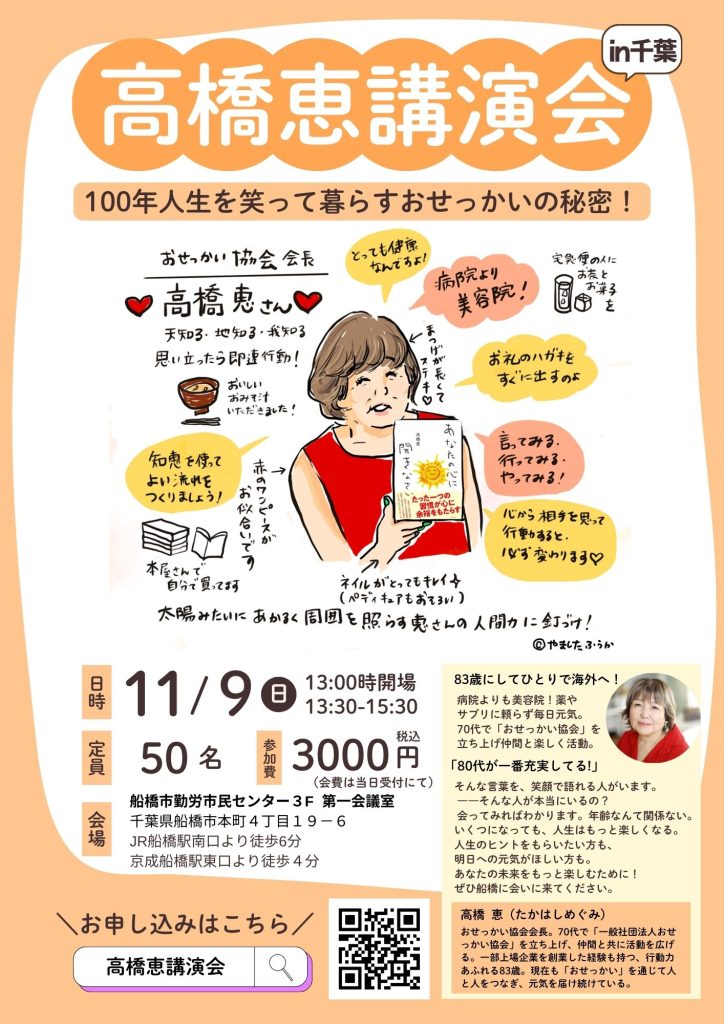 in千葉
高橋恵講演会
100年人生を笑って暮らすおせっかいの秘密！
おせっかい協会 会長
高橋恵さん
天知る・地知る・我知る
思い立ったら即速行動！
おいしい
おみそ汁
いただきました！
とっても健康
なんですよ！
病院より
美容院！
宅急便の人に
お茶と
お菓子
を
まつげが長くて
ステキ♡
お礼のハガキを
すぐに出すのよ
言ってみる・
行ってみる・
やってみる！
心から相手を思って
行動すると、
必ず変わります♡
知恵を使って
よい流れを
つくりましょう！
赤のワンピースが
お似合いです
あなたの心に
聞きなさい
高橋恵
たった一つの
習慣が心に
余裕をもたらす
本屋さんで
自分で買ってます
ネイルがとってもキレイ
(ペディキュアもおそろい)
太陽みたいにあかるく周囲を照らす恵さんの人間力に釘づけ！
©やましたふうか
日時
11/9日
13:00時開場
13:30-15:30
定員
50名
参加費
3000円
税込
（会費は当日受付にて）
会場
船橋市勤労市民センター３F 第一会議室
千葉県船橋市本町４丁目１９－６
JR船橋駅南口より徒歩6分
京成船橋駅東口より徒歩４分
83歳にしてひとりで海外へ！
病院よりも美容院！薬や
サプリに頼らず毎日元気。
70代で「おせっかい協会」を
立ち上げ仲間と楽しく活動。
「80代が一番充実してる!」
そんな言葉を、笑顔で語れる人がいます。
——そんな人が本当にいるの？
会ってみればわかります。年齢なんて関係ない。
いくつになっても、人生はもっと楽しくなる。
人生のヒントをもらいたい方も、
明日への元気がほしい方も。
あなたの未来をもっと楽しむために！
ぜひ船橋に会いに来てください。
高橋 恵（たかはしめぐみ）
おせっかい協会会長。70代で「一般社団法人おせ
っかい協会」を立ち上げ、仲間と共に活動を広げ
る。一部上場企業を創業した経験も持つ、行動力
あふれる83歳。現在も「おせっかい」を通じて人
と人をつなぎ、元気を届け続けている。
＼お申し込みはこちら／
高橋恵講演会